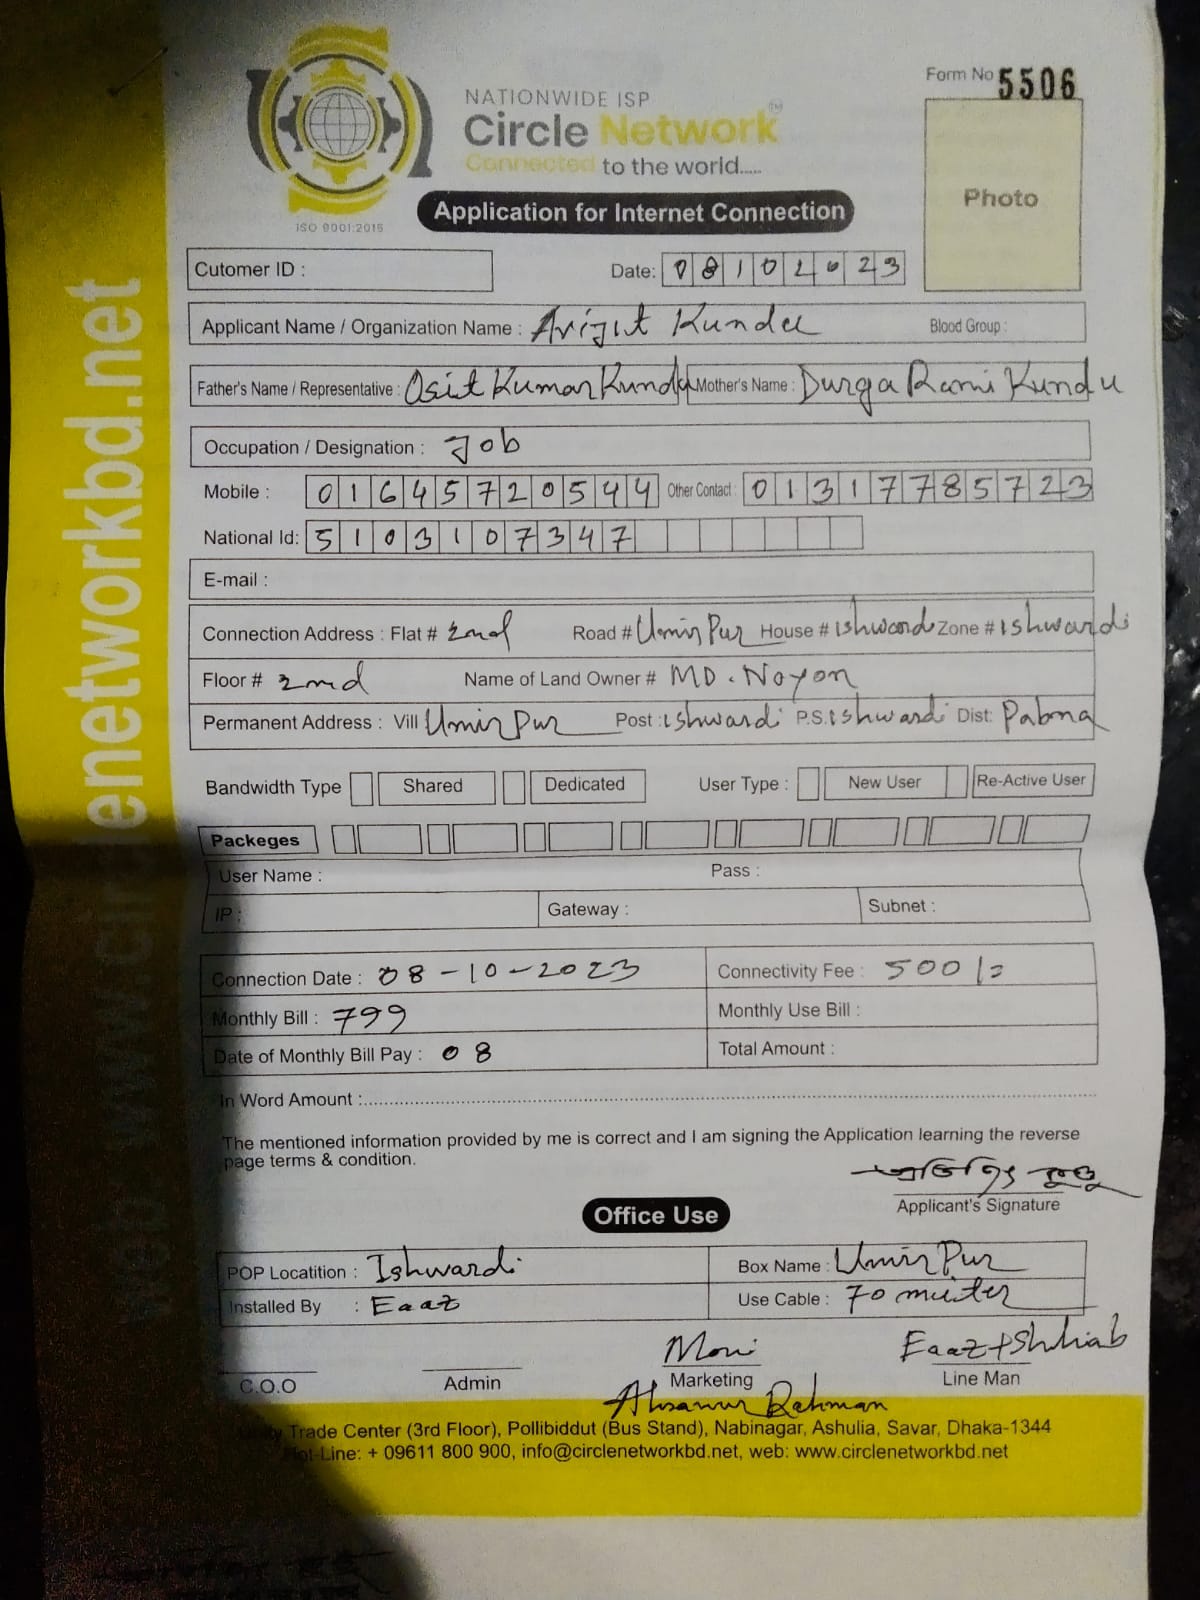 NATIONWIDE ISP
Circle Network TM
Connected to the world.....
ISO 9001:2015
Form No 5506
Photo
Application for Internet Connection
Cutomer ID :
Date: 08102023
Applicant Name / Organization Name : Arijit Kundu
Blood Group :
Father's Name / Representative : Osit Kumar Kundu Mother's Name : Durga Rani Kundu
Occupation / Designation : Job
Mobile : 01645720544 Other Contact : 01317785723
National Id: 5103107347
E-mail :
Connection Address : Flat # 2nd Road # Umir Pur House # ishwardi Zone # ishwardi
Floor # 2nd Name of Land Owner # MD. Noyon
Permanent Address : Vill Umir Pur Post : ishwardi P.S. ishwardi Dist: Pabna
Bandwidth Type Shared Dedicated User Type : New User Re-Active User
Packeges
User Name : Pass :
IP : Gateway : Subnet :
Connection Date : 08-10-2023 Connectivity Fee : 500/=
Monthly Bill : 799 Monthly Use Bill :
Date of Monthly Bill Pay : 08 Total Amount :
In Word Amount :
The mentioned information provided by me is correct and I am signing the Application learning the reverse
page terms & condition.
অরিজিৎ কুন্ডু
Applicant's Signature
Office Use
POP Locatition : Ishwardi Box Name : Umir Pur
Installed By : Eaaz Use Cable : 70 miiter
Moni Eaaz+Shihab
C.O.O Admin Marketing Line Man
Ahsanur Rahman
Trade Center (3rd Floor), Pollibiddut (Bus Stand), Nabinagar, Ashulia, Savar, Dhaka-1344
Hot-Line: + 09611 800 900, info@circlenetworkbd.net, web: www.circlenetworkbd.net
web: www.circlenetworkbd.net